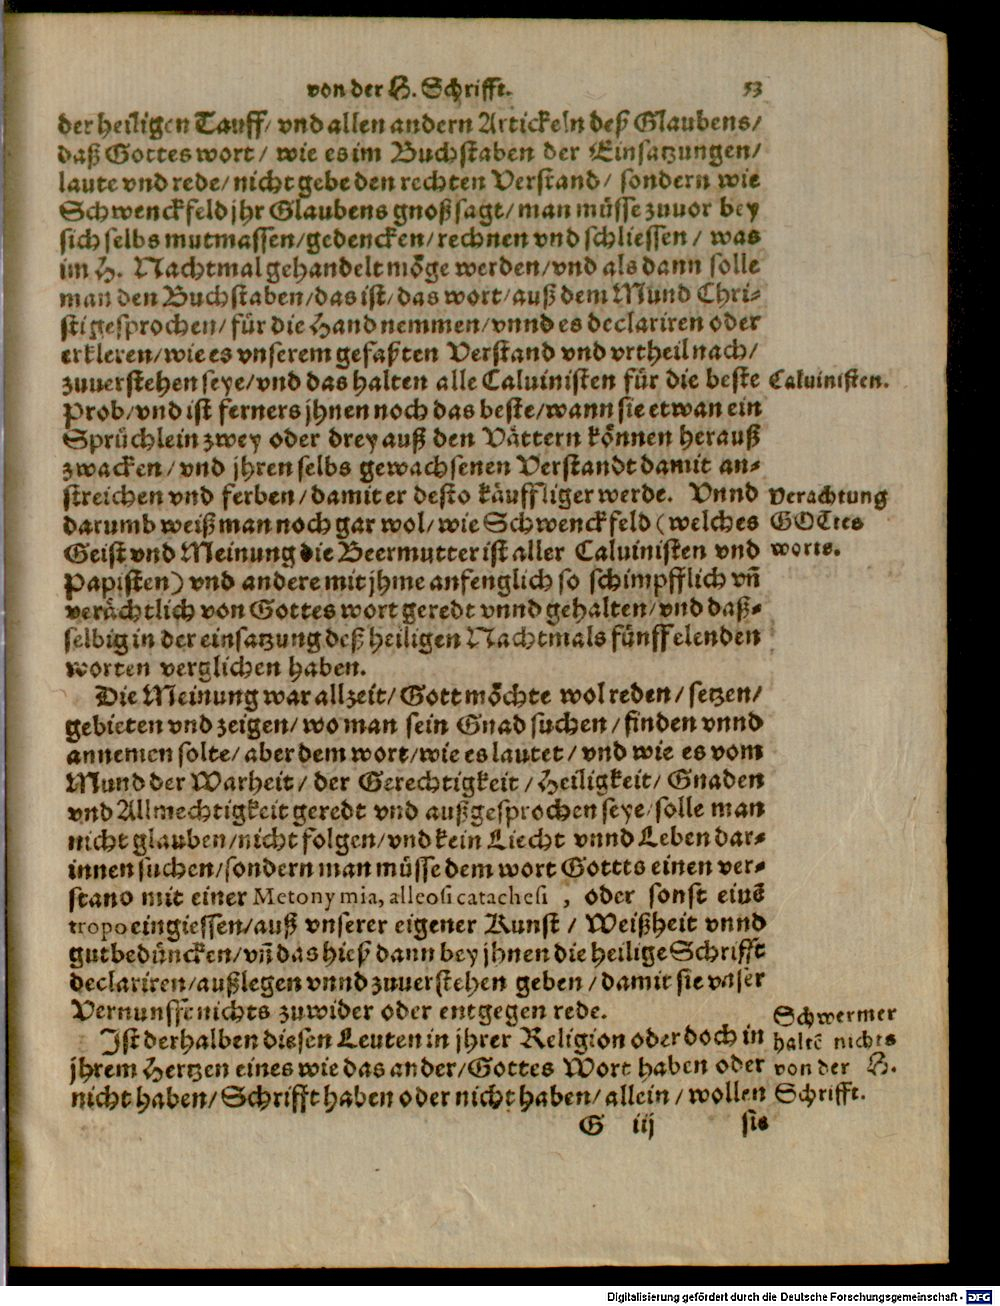 von der H. Schrifft. 53
der heiligen Tauff/ vnd allen andern Artickeln deß Glaubens/
daß Gottes wort/ wie es im Buchstaben der Einsatzungen/
laute vnd rede/ nicht gebe den rechten Verstand/ sondern wie
Schwenckfeld jhr Glaubens gnoß sagt/ man müsse zuuor bey
sich selbs mutmassen/ gedencken/ rechnen vnd schliessen/ was
im H. Nachtmal gehandelt möge werden/ vnd als dann solle
man den Buchstaben/ das ist/ das wort/ auß dem Mund Chri-
sti gesprochen/ für die Hand nemmen/ vnnd es declariren oder
erkleren/ wie es vnserem gefaßten Verstand vnd vrtheil nach/
zuuerstehen seye/ vnd das halten alle Caluinisten für die beste Caluinisten.
Prob/ vnd ist ferners jhnen noch das beste/ wann sie etwan ein
Sprüchlein zwey oder drey auß den Vättern können herauß
zwacken/ vnd jhren selbs gewachsenen Verstandt damit an-
streichen vnd ferben/ damit er desto käuffliger werde. Vnnd Verachtung
darumb weiß man noch gar wol/ wie Schwenckfeld (welches GOTtes
Geist vnd Meinung die Beermutter ist aller Caluinisten vnd worts.
Papisten) vnd andere mit jhme anfenglich so schimpfflich vñ
verächtlich von Gottes wort geredt vnnd gehalten/ vnd daß-
selbig in der einsatzung deß heiligen Nachtmals fünff elenden
worten verglichen haben.
Die Meinung war allzeit/ Gott möchte wol reden/ setzen/
gebieten vnd zeigen/ wo man sein Gnad suchen/ finden vnnd
annemen solte/ aber dem wort/ wie es lautet/ vnd wie es vom
Mund der Warheit/ der Gerechtigkeit/ Heiligkeit/ Gnaden
vnd Allmechtigkeit geredt vnd außgesprochen seye/ solle man
nicht glauben/ nicht folgen/ vnd kein Liecht vnnd Leben dar-
innen suchen/ sondern man müsse dem wort Gottts einen ver-
stand mit einer Metonymia, alleosi catachesi , oder sonst einẽ
tropo eingiessen/ auß vnserer eigener Kunst/ Weißheit vnnd
gutbedüncken/ vñ das hieß dann bey jhnen die heilige Schrifft
declariren/ außlegen vnnd zuuerstehen geben/ damit sie vnser
Vernunfft nichts zuwider oder entgegen rede.
Schwermer
Ist derhalben diesen Leuten in jhrer Religion oder doch in haltẽ nichts
jhrem Hertzen eines wie das ander/ Gottes Wort haben oder von der H.
nicht haben/ Schrifft haben oder nicht haben/ allein/ wollen Schrifft.
G iij sie
Digitalisierung gefördert durch die Deutsche Forschungsgemeinschaft - DFG